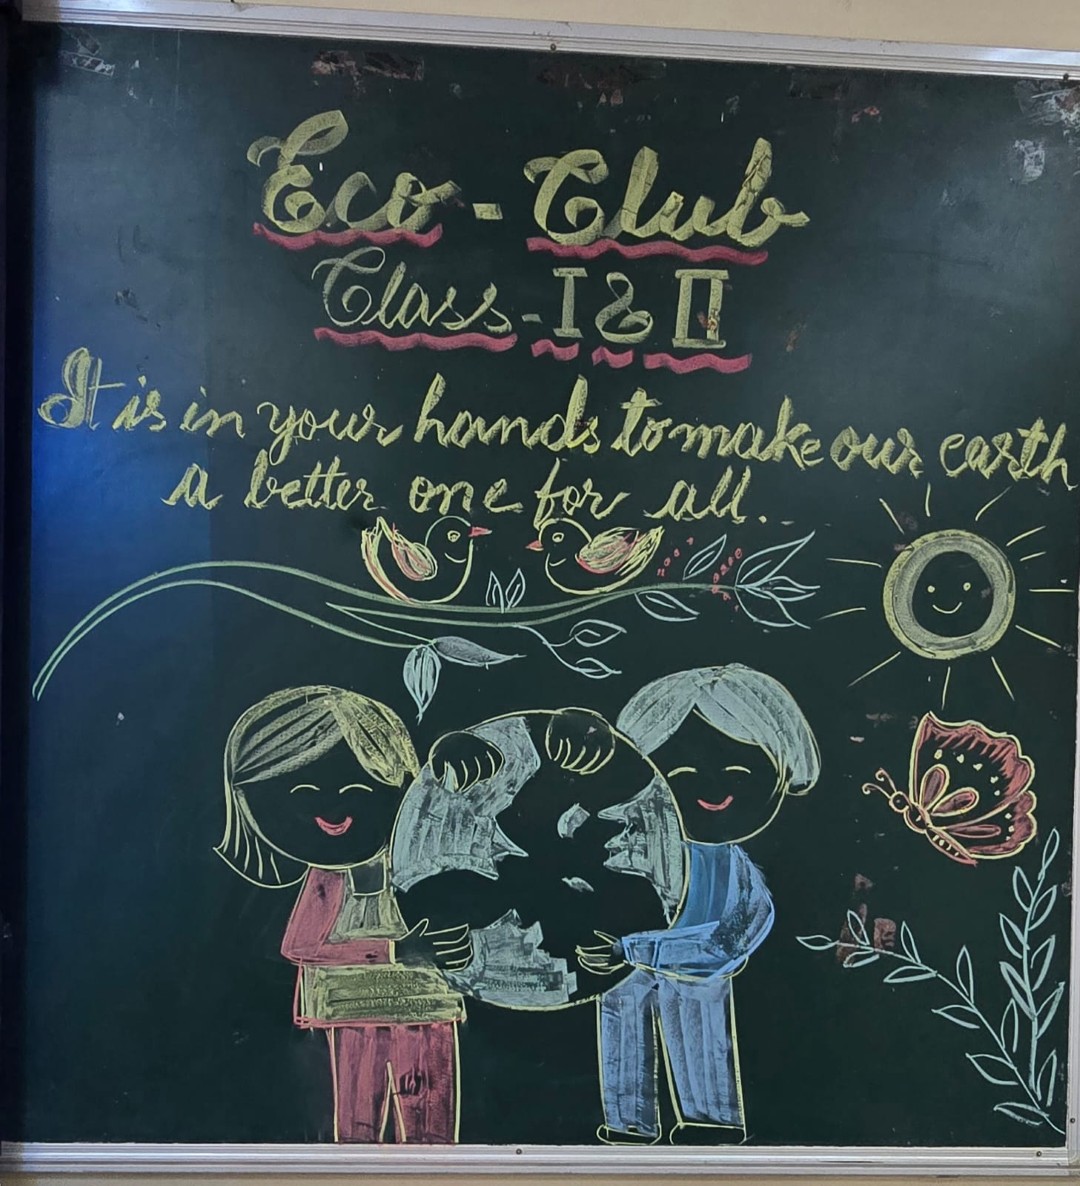 Eco - Club
Class - I & II
It is in your hands to make our earth
a better one for all.